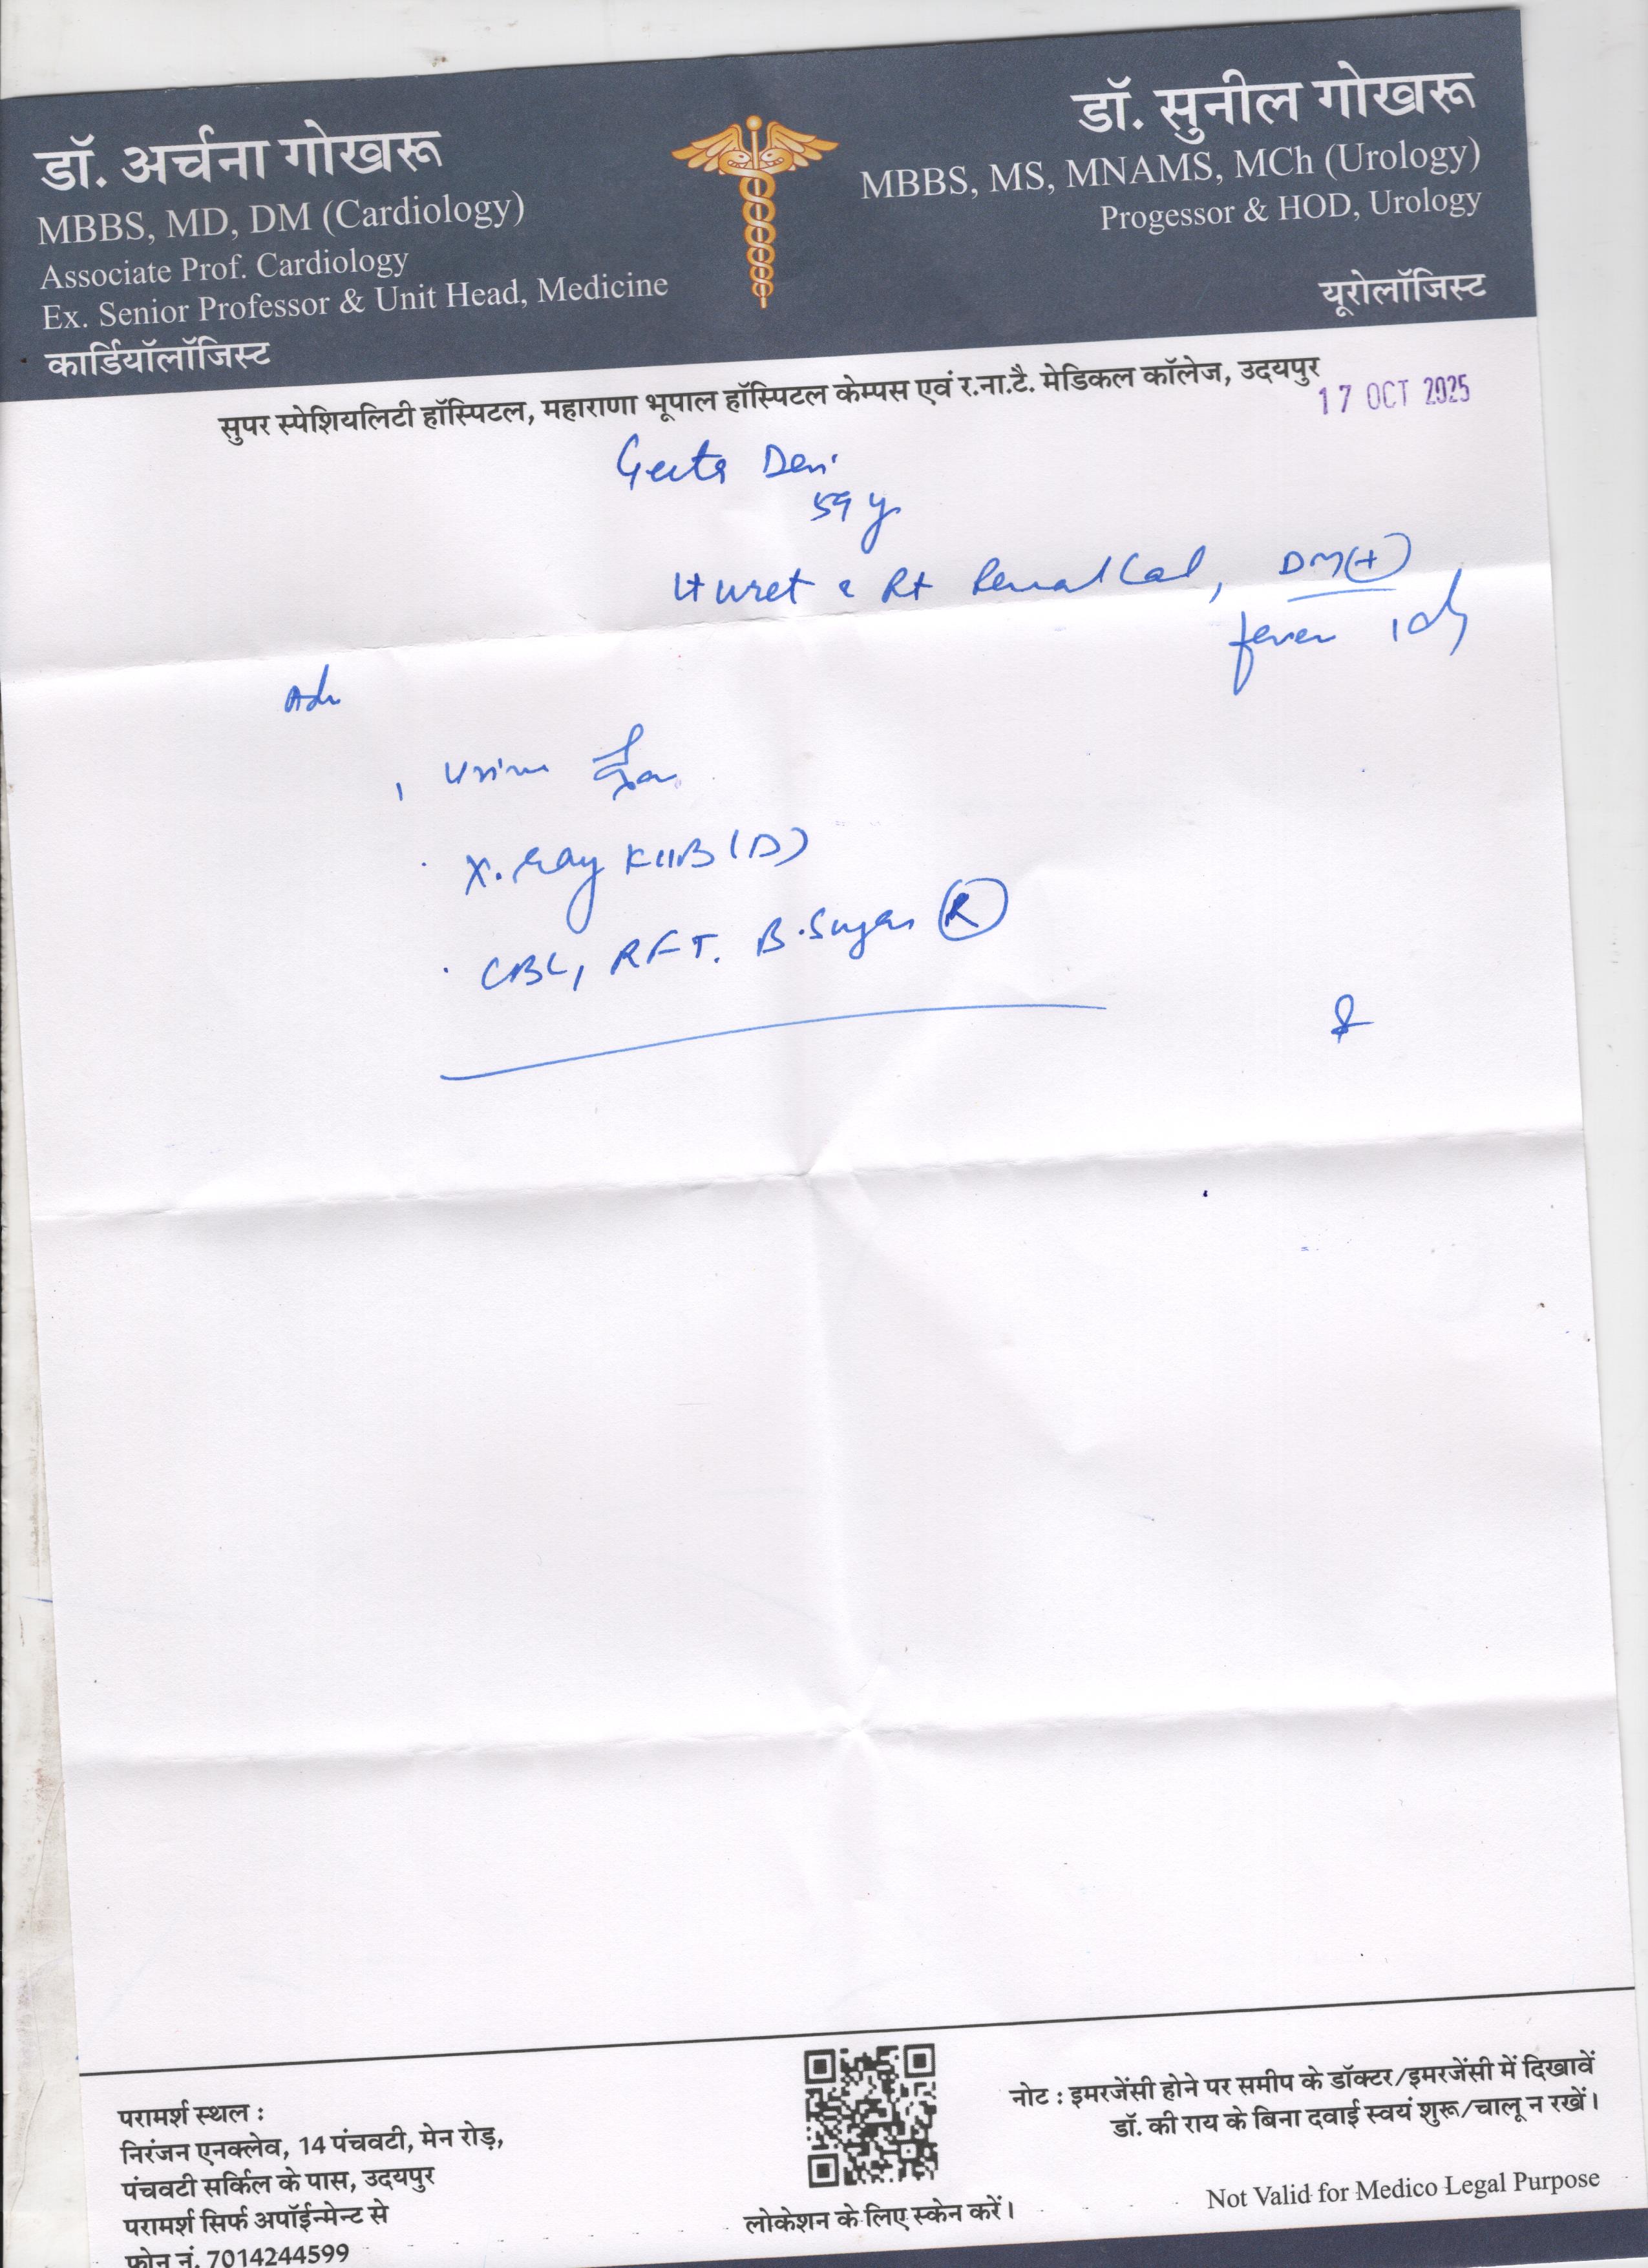 डॉ. अर्चना गोखरू
MBBS, MD, DM (Cardiology)
Associate Prof. Cardiology
Ex. Senior Professor & Unit Head, Medicine
कार्डियॉलॉजिस्ट
डॉ. सुनील गोखरू
MBBS, MS, MNAMS, MCh (Urology)
Progessor & HOD, Urology
यूरोलॉजिस्ट
सुपर स्पेशियलिटी हॉस्पिटल, महाराणा भूपाल हॉस्पिटल केम्पस एवं र.ना.टै. मेडिकल कॉलेज, उदयपुर
17 OCT 2025
Geeta Devi
59 y
Rt Renal Cal, DM(+)
fever
Adv
Urine
X.Ray KUB (D)
CBC, RFT. B.Sugar (R)
परामर्श स्थल :
निरंजन एनक्लेव, 14 पंचवटी, मेन रोड़,
पंचवटी सर्किल के पास, उदयपुर
परामर्श सिर्फ अपॉईन्मेन्ट से
फोन नं. 7014244599
लोकेशन के लिए स्केन करें।
नोट : इमरजेंसी होने पर समीप के डॉक्टर/इमरजेंसी में दिखावें
डॉ. की राय के बिना दवाई स्वयं शुरू/चालू न रखें।
Not Valid for Medico Legal Purpose